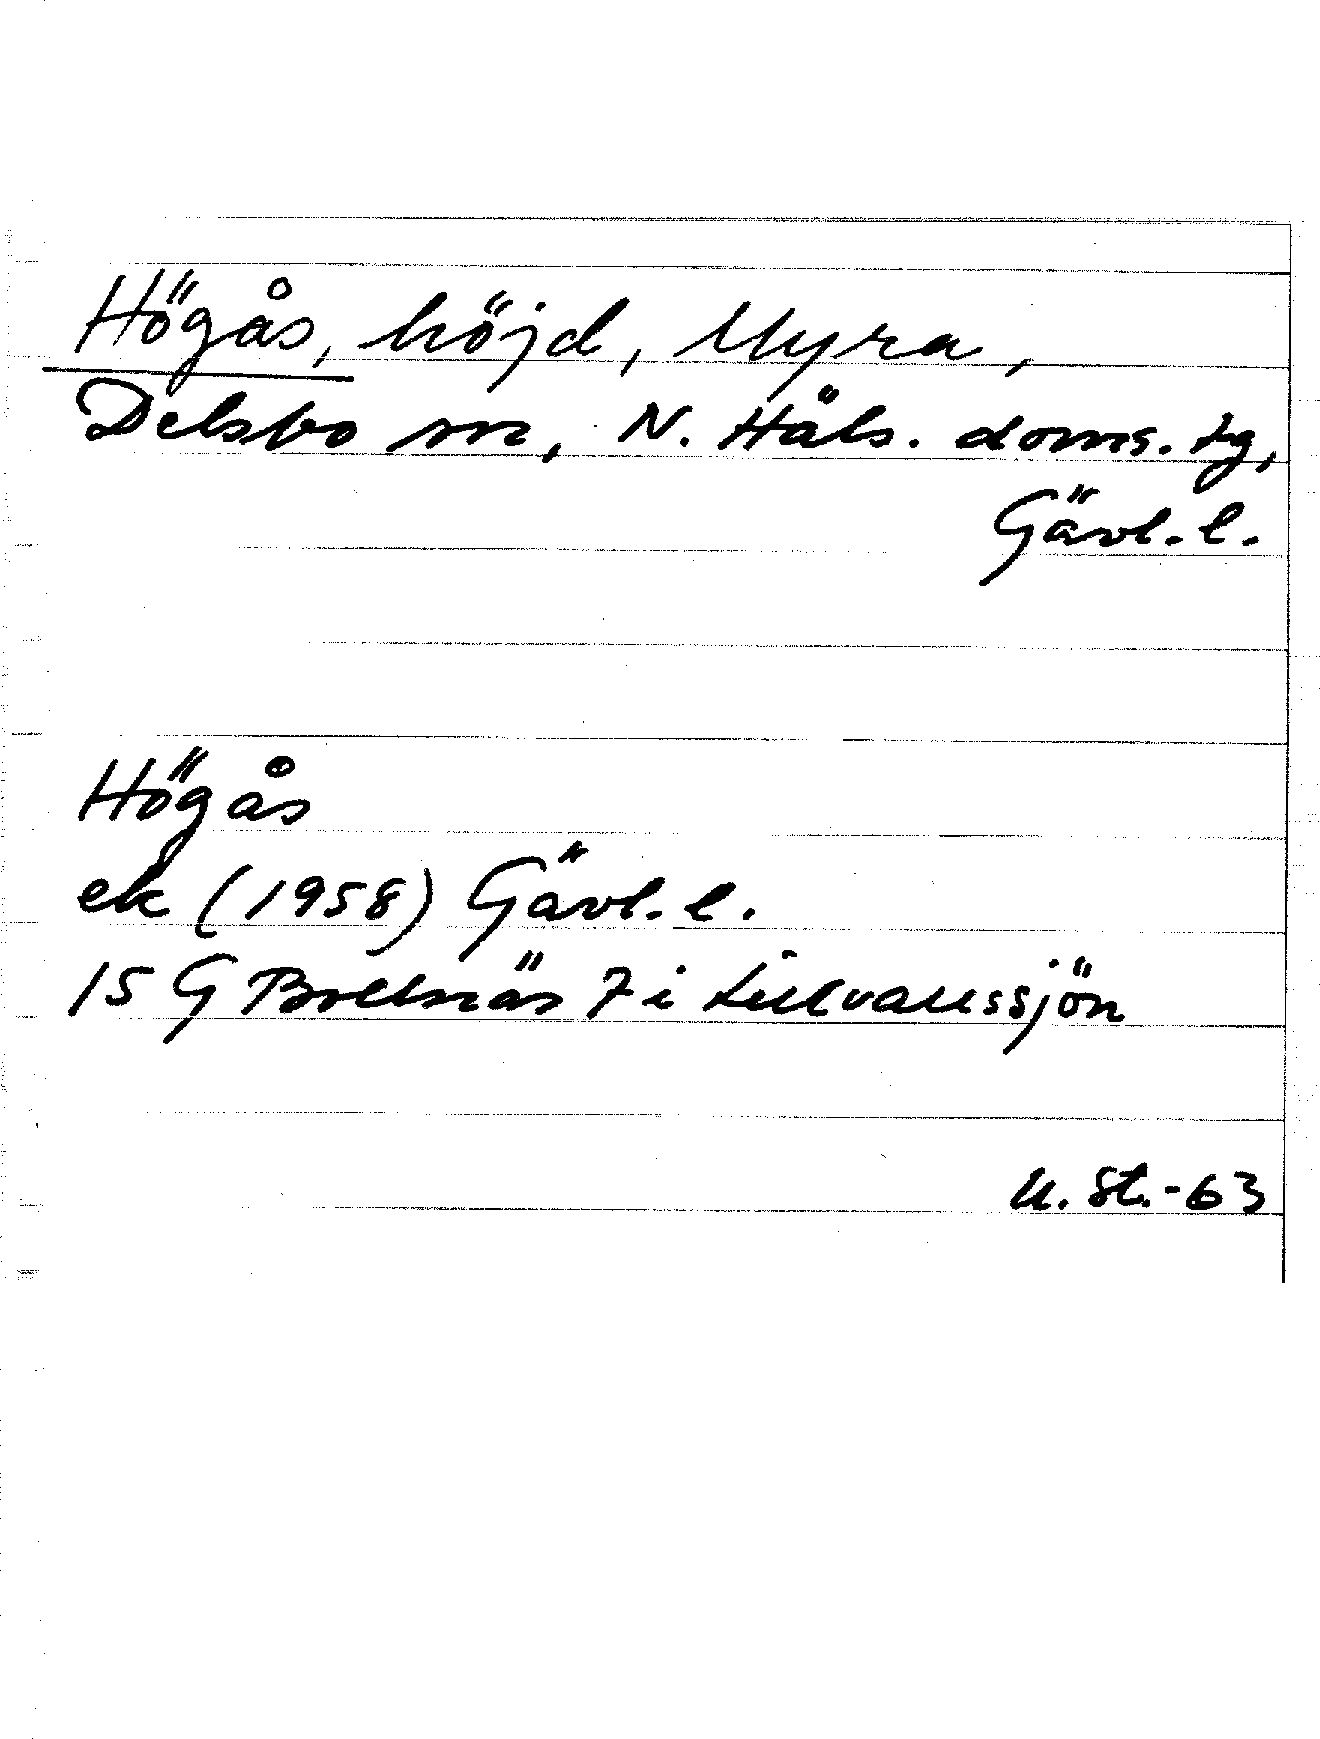 Högås, höjd, Myra,
Delsbo sn, N. Häls. doms. tg,
Gävl. l.
Högås
ek (1958) Gävl. l.
15 G Bollnäs 7 i Lillvallssjön
U. St. -63